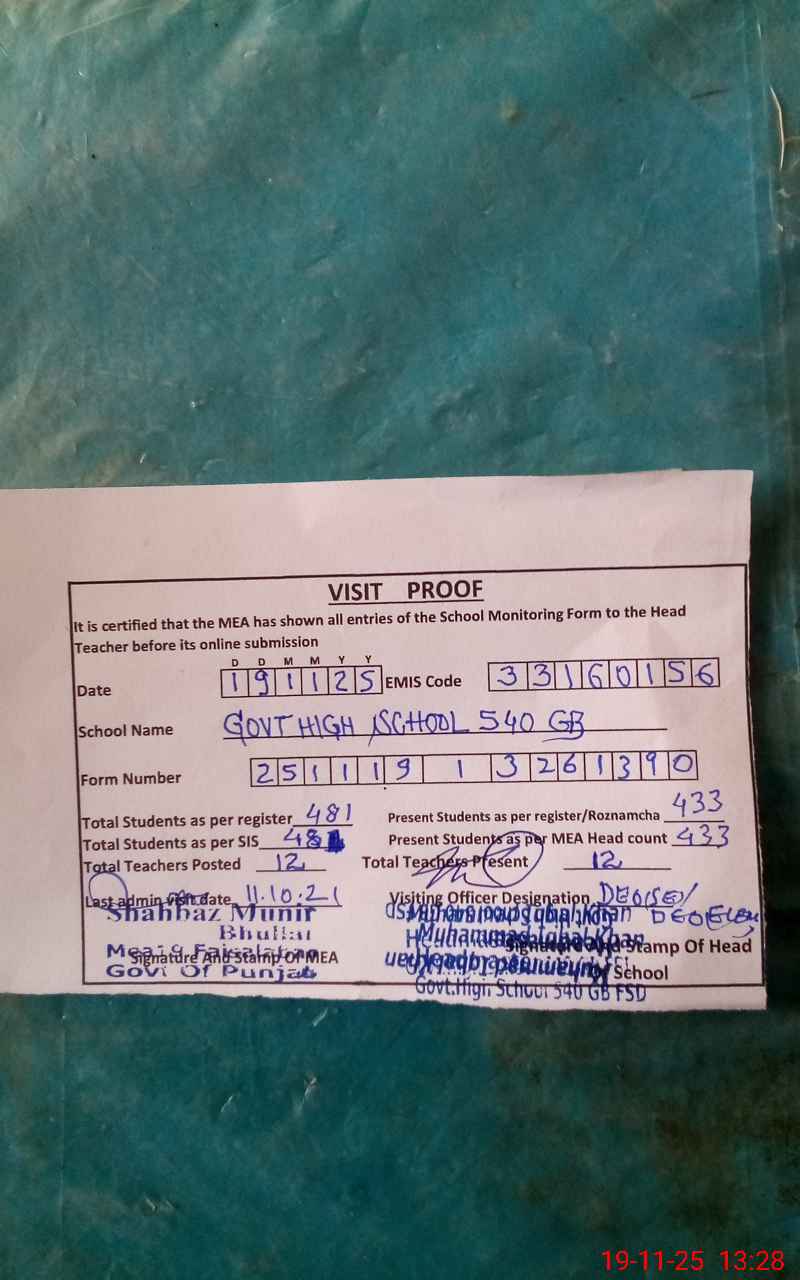 VISIT PROOF
It is certified that the MEA has shown all entries of the School Monitoring Form to the Head
Teacher before its online submission
D D M M Y Y
Date 191125 EMIS Code 33160156
School Name GOVT HIGH SCHOOL 540 GB
Form Number 25111913261390
Total Students as per register 481 Present Students as per register/Roznamcha 433
Total Students as per SIS 481 Present Students as per MEA Head count 433
Total Teachers Posted 12 Total Teachers Present 12
Last admin visit date 11.10.21 Visiting Officer Designation DEO(SE)/
Shahbaz Munir DEO
Bhullar Muhammad Iqbal Khan
Signature And Stamp Of MEA Signature And Stamp Of Head
Govt Of Punjab School
Govt.High School 540 GB FSD
19-11-25 13:28